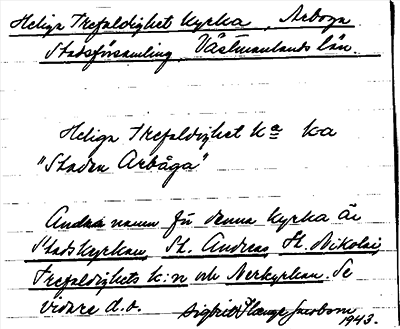 Heliga Trefaldighet Kyrka, Arboga
Stadsförsamling, Västmanlands län.
Heliga Trefaldighet ka ka
"Staden Arbåga"
Andra namn för denna kyrka är
Stadskyrkan, St. Andreas, St. Nikolai,
Trefaldighets k:n och Nerkyrkan. Se
vidare d.o.
Sigfrid 1943.